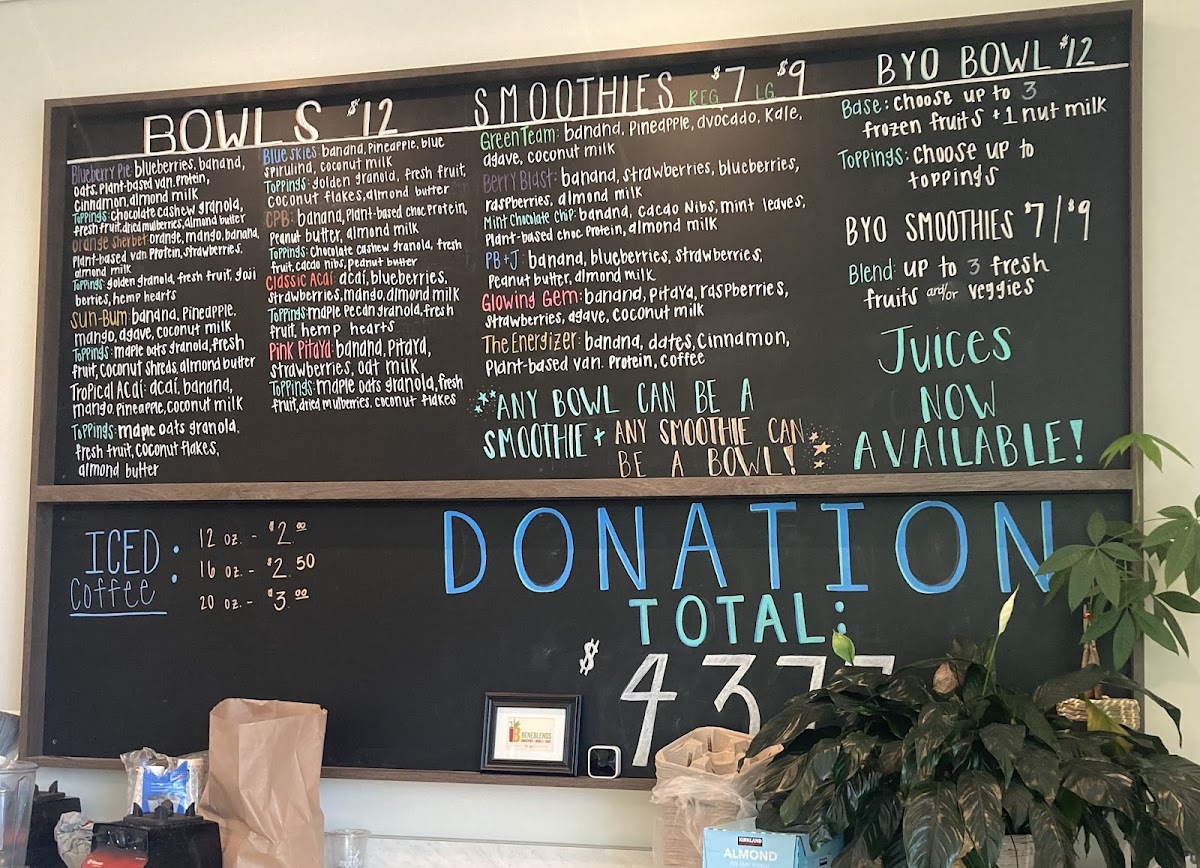 BOWLS $12
Blueberry Pie: blueberries, banana,
oats, plant-based van. protein,
cinnamon, almond milk
Toppings: chocolate cashew granola,
fresh fruit, dried mulberries, almond butter
orange sherbet: orange, mango, banana,
Plant-based van Protein, strawberries,
almond milk
Toppings: golden granola, fresh fruit, goji
berries, hemp hearts
Sun-Bum: banana, Pineapple,
mango, agave, coconut milk
Toppings: maple oats granola, fresh
fruit, coconut shreds, almond butter
Tropical Acaí: acaí, banana,
mango, pineapple, coconut milk
Toppings: maple oats granola,
fresh fruit, coconut flakes,
almond butter
Blue skies: banana, Pineapple, blue
spirulina, coconut milk
Toppings: golden granola, fresh fruit,
coconut flakes, almond butter
CPB: banana, Plant-based choc Protein,
Peanut butter, almond milk
Toppings: chocolate cashew granola, fresh
fruit, cacao nibs, peanut butter
Classic Acaí: acaí, blueberries,
strawberries, mango, almond milk
Toppings: maple pecan granola, fresh
fruit, hemp hearts
Pink Pitaya: banana, Pitaya,
strawberries, oat milk
Toppings: maple oats granola, fresh
fruit, dried mulberries, coconut flakes
SMOOTHIES REG $7 LG $9
Green Team: banana, Pineapple, avocado, kale,
agave, coconut milk
Berry Blast: banana, strawberries, blueberries,
raspberries, almond milk
Mint Chocolate Chip: banana, cacao Nibs, mint leaves,
Plant-based choc Protein, almond milk
PB+J: banana, blueberries, strawberries,
Peanut butter, almond milk
Glowing Gem: banana, Pitaya, raspberries,
strawberries, agave, coconut milk
The Energizer: banana, dates, Cinnamon,
Plant-based van. Protein, coffee
ANY BOWL CAN BE A
SMOOTHIE + ANY SMOOTHIE CAN
BE A BOWL!
BYO BOWL $12
Base: choose up to 3
frozen fruits + 1 nut milk
Toppings: choose up to
toppings
BYO SMOOTHIES $7/$9
Blend: up to 3 fresh
fruits and/or veggies
Juices
NOW
AVAILABLE!
ICED
Coffee :
12 oz. - $2.00
16 oz. - $2.50
20 oz. - $3.00
DONATION
TOTAL:
$437
BENEBLENDS
KIRKLAND
ALMOND